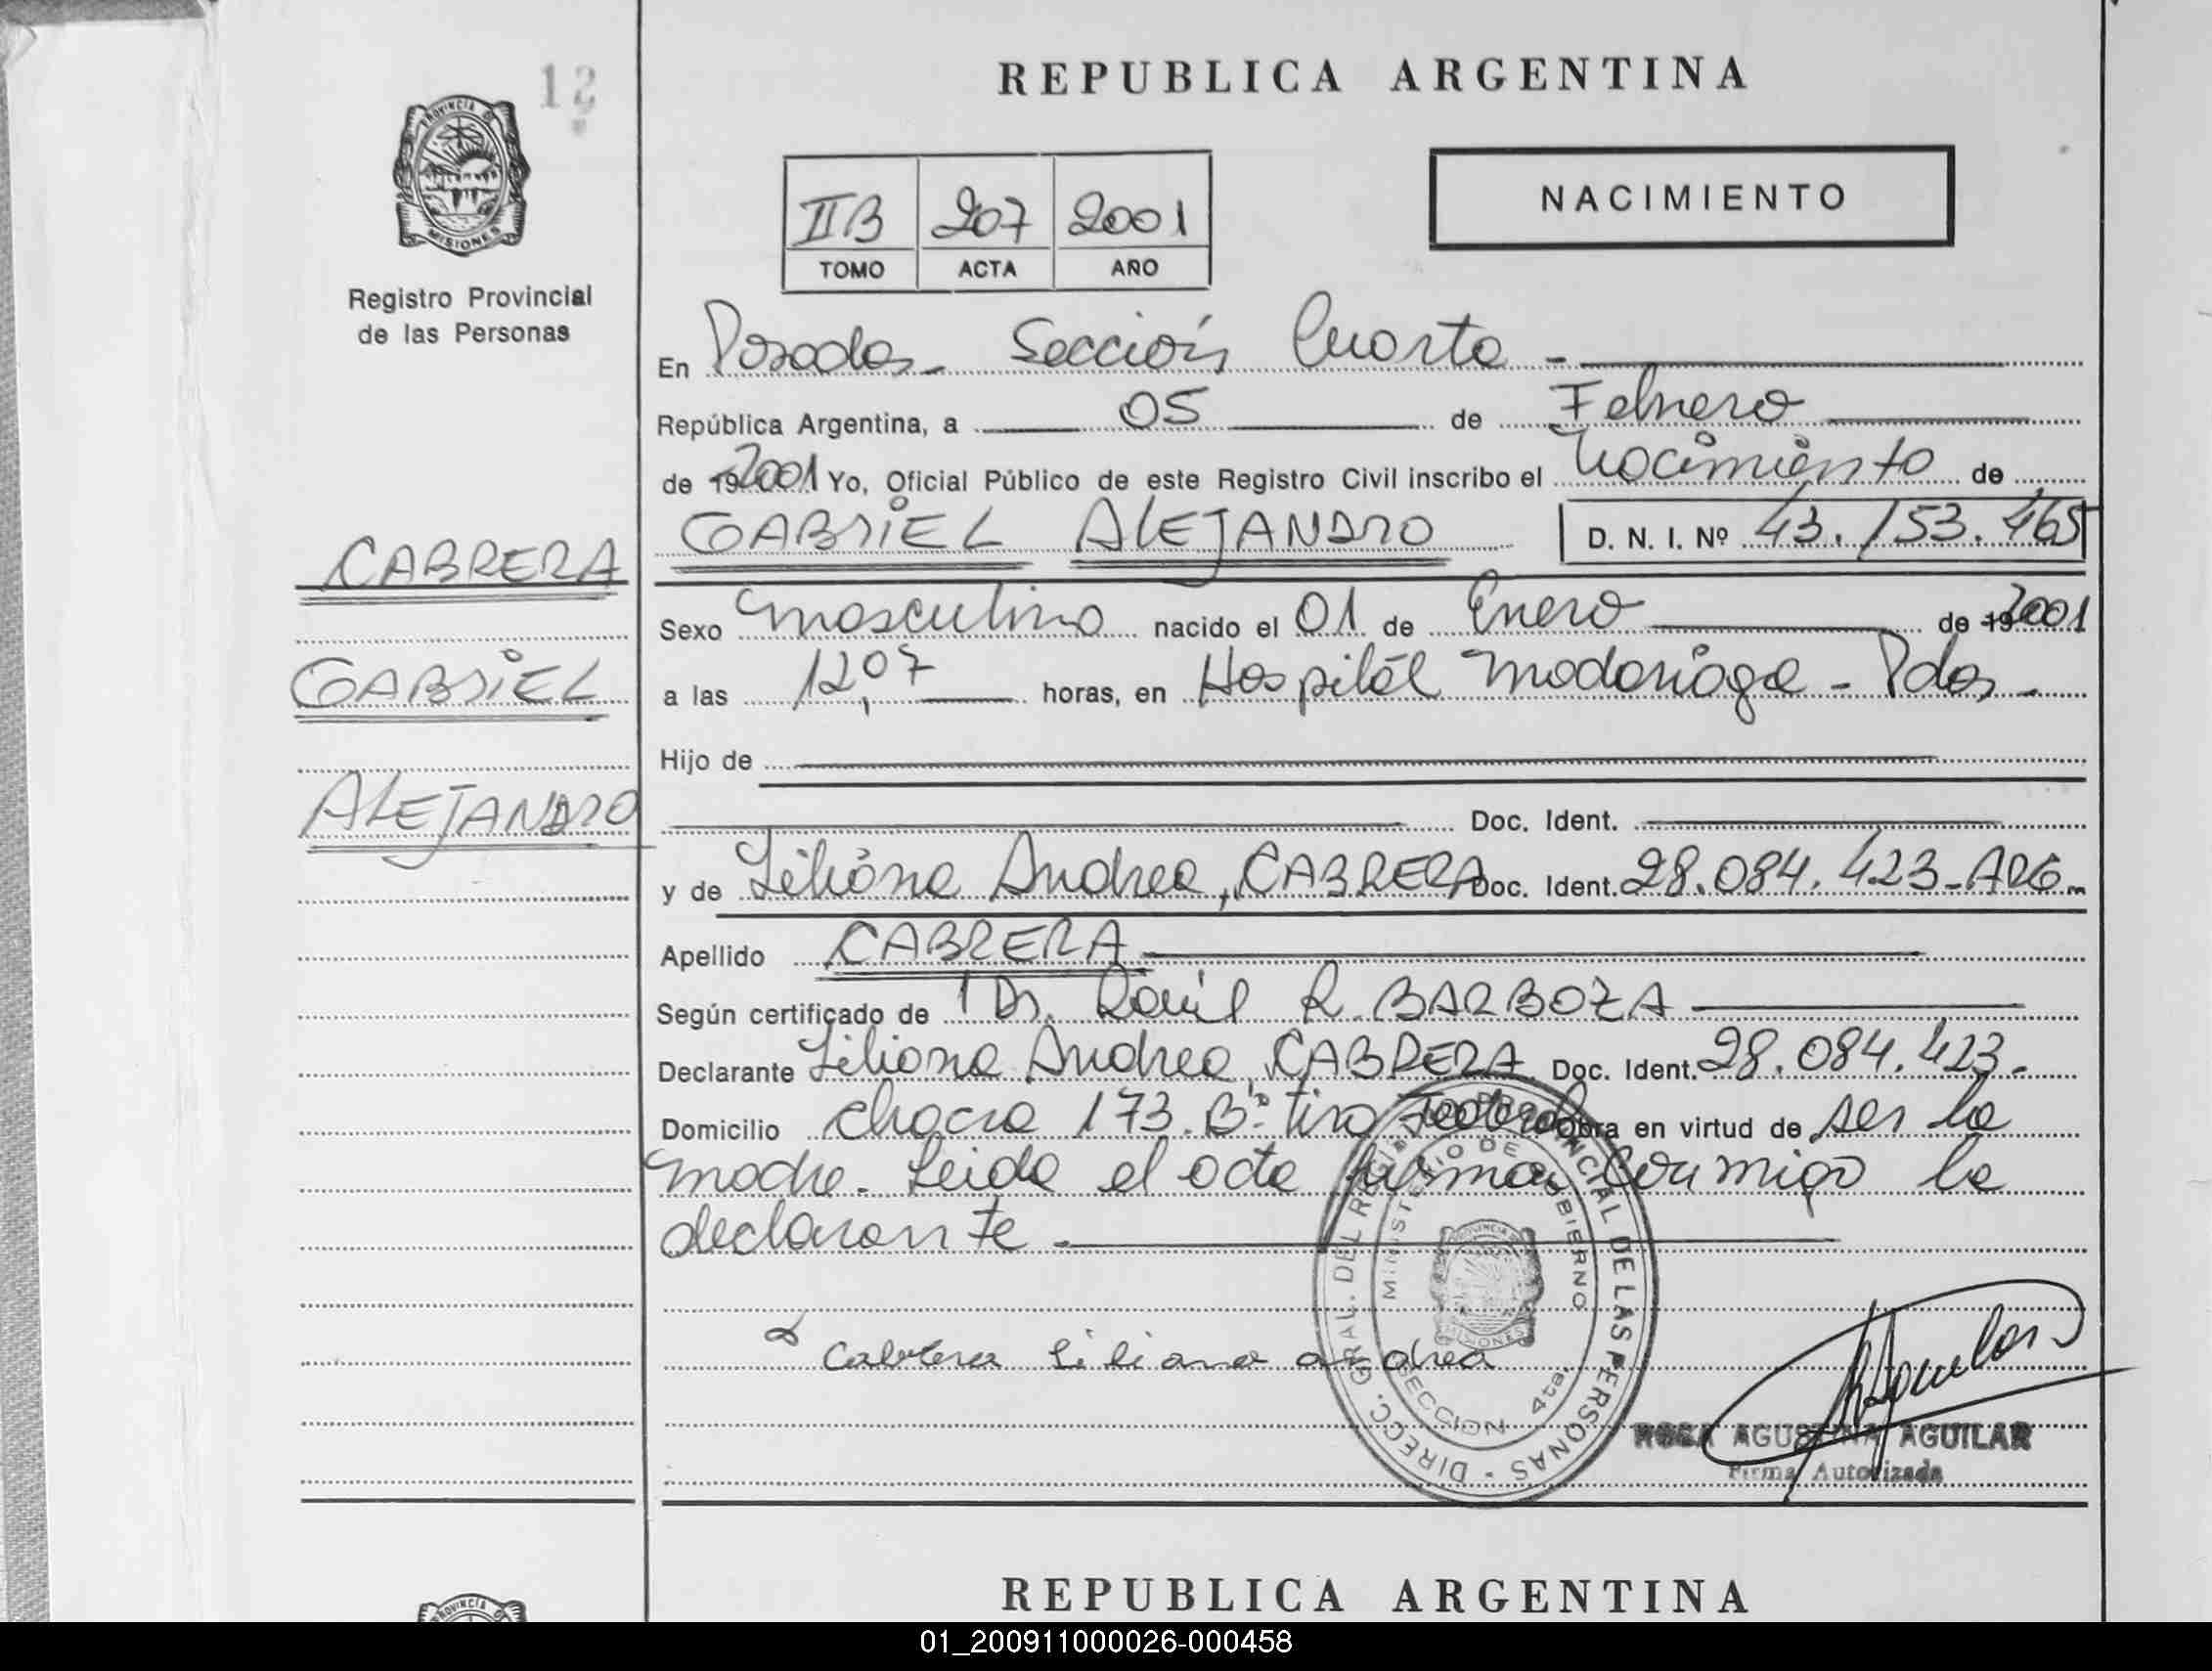 12
PROVINCIA DE
MISIONES
Registro Provincial
de las Personas
CABRERA
GABRIEL
ALEJANDRO
REPUBLICA ARGENTINA
NACIMIENTO
IIB 207 2001
TOMO ACTA AÑO
En Posadas - Sección Cuarta -
República Argentina, a 05 de Febrero
de 19 2001 Yo, Oficial Público de este Registro Civil inscribo el Nacimiento de
GABRIEL ALEJANDRO D. N. I. Nº 43.153.465
Sexo masculino nacido el 01 de Enero de 19 2001
a las 12,07 horas, en Hospital Madariaga - Pdas -
Hijo de
Doc. Ident.
y de Liliana Andrea, CABRERA Doc. Ident. 28.084.423 - ARG.
Apellido CABRERA
Según certificado de Dr. Raúl R. BARBOZA
Declarante Liliana Andrea CABRERA Doc. Ident. 28.084.423.
Domicilio Chacra 173. Bº Tiro Federal Obra en virtud de ser la
madre. Leida el acta firma conmigo la
declarante -
Cabrera Liliana andrea
DIRECC. GRAL. DEL REGISTRO PROVINCIAL DE LAS PERSONAS
MINISTERIO DE GOBIERNO
PROVINCIA
MISIONES
SECCION 4ta.
ROSA AGUSTINA AGUILAR
Firma Autorizada
PROVINCIA
REPUBLICA ARGENTINA
01_200911000026-000458